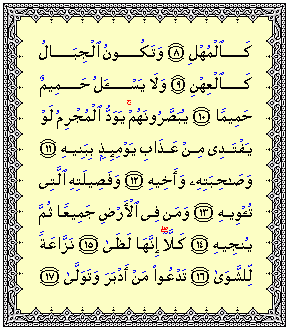 كَٱلْمُهْلِ ﴿٨﴾ وَتَكُونُ ٱلْجِبَالُ
كَٱلْعِهْنِ ﴿٩﴾ وَلَا يَسْـَٔلُ حَمِيمٌ
حَمِيمًا ﴿١٠﴾ يُبَصَّرُونَهُمْ ۚ يَوَدُّ ٱلْمُجْرِمُ لَوْ
يَفْتَدِى مِنْ عَذَابِ يَوْمِئِذٍۭ بِبَنِيهِ ﴿١١﴾
وَصَـٰحِبَتِهِۦ وَأَخِيهِ ﴿١٢﴾ وَفَصِيلَتِهِ ٱلَّتِى
تُـْٔوِيهِ ﴿١٣﴾ وَمَن فِى ٱلْأَرْضِ جَمِيعًا ثُمَّ
يُنجِيهِ ﴿١٤﴾ كَلَّآ ۖ إِنَّهَا لَظَىٰ ﴿١٥﴾ نَزَّاعَةً
لِّلشَّوَىٰ ﴿١٦﴾ تَدْعُوا۟ مَنْ أَدْبَرَ وَتَوَلَّىٰ ﴿١٧﴾